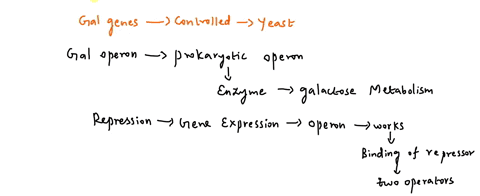 Gal genes → Controlled → Yeast
Gal operon → prokaryotic operon
Enzyme → galactose Metabolism
Repression → Gene Expression → operon → works
Binding of repressor
two operators